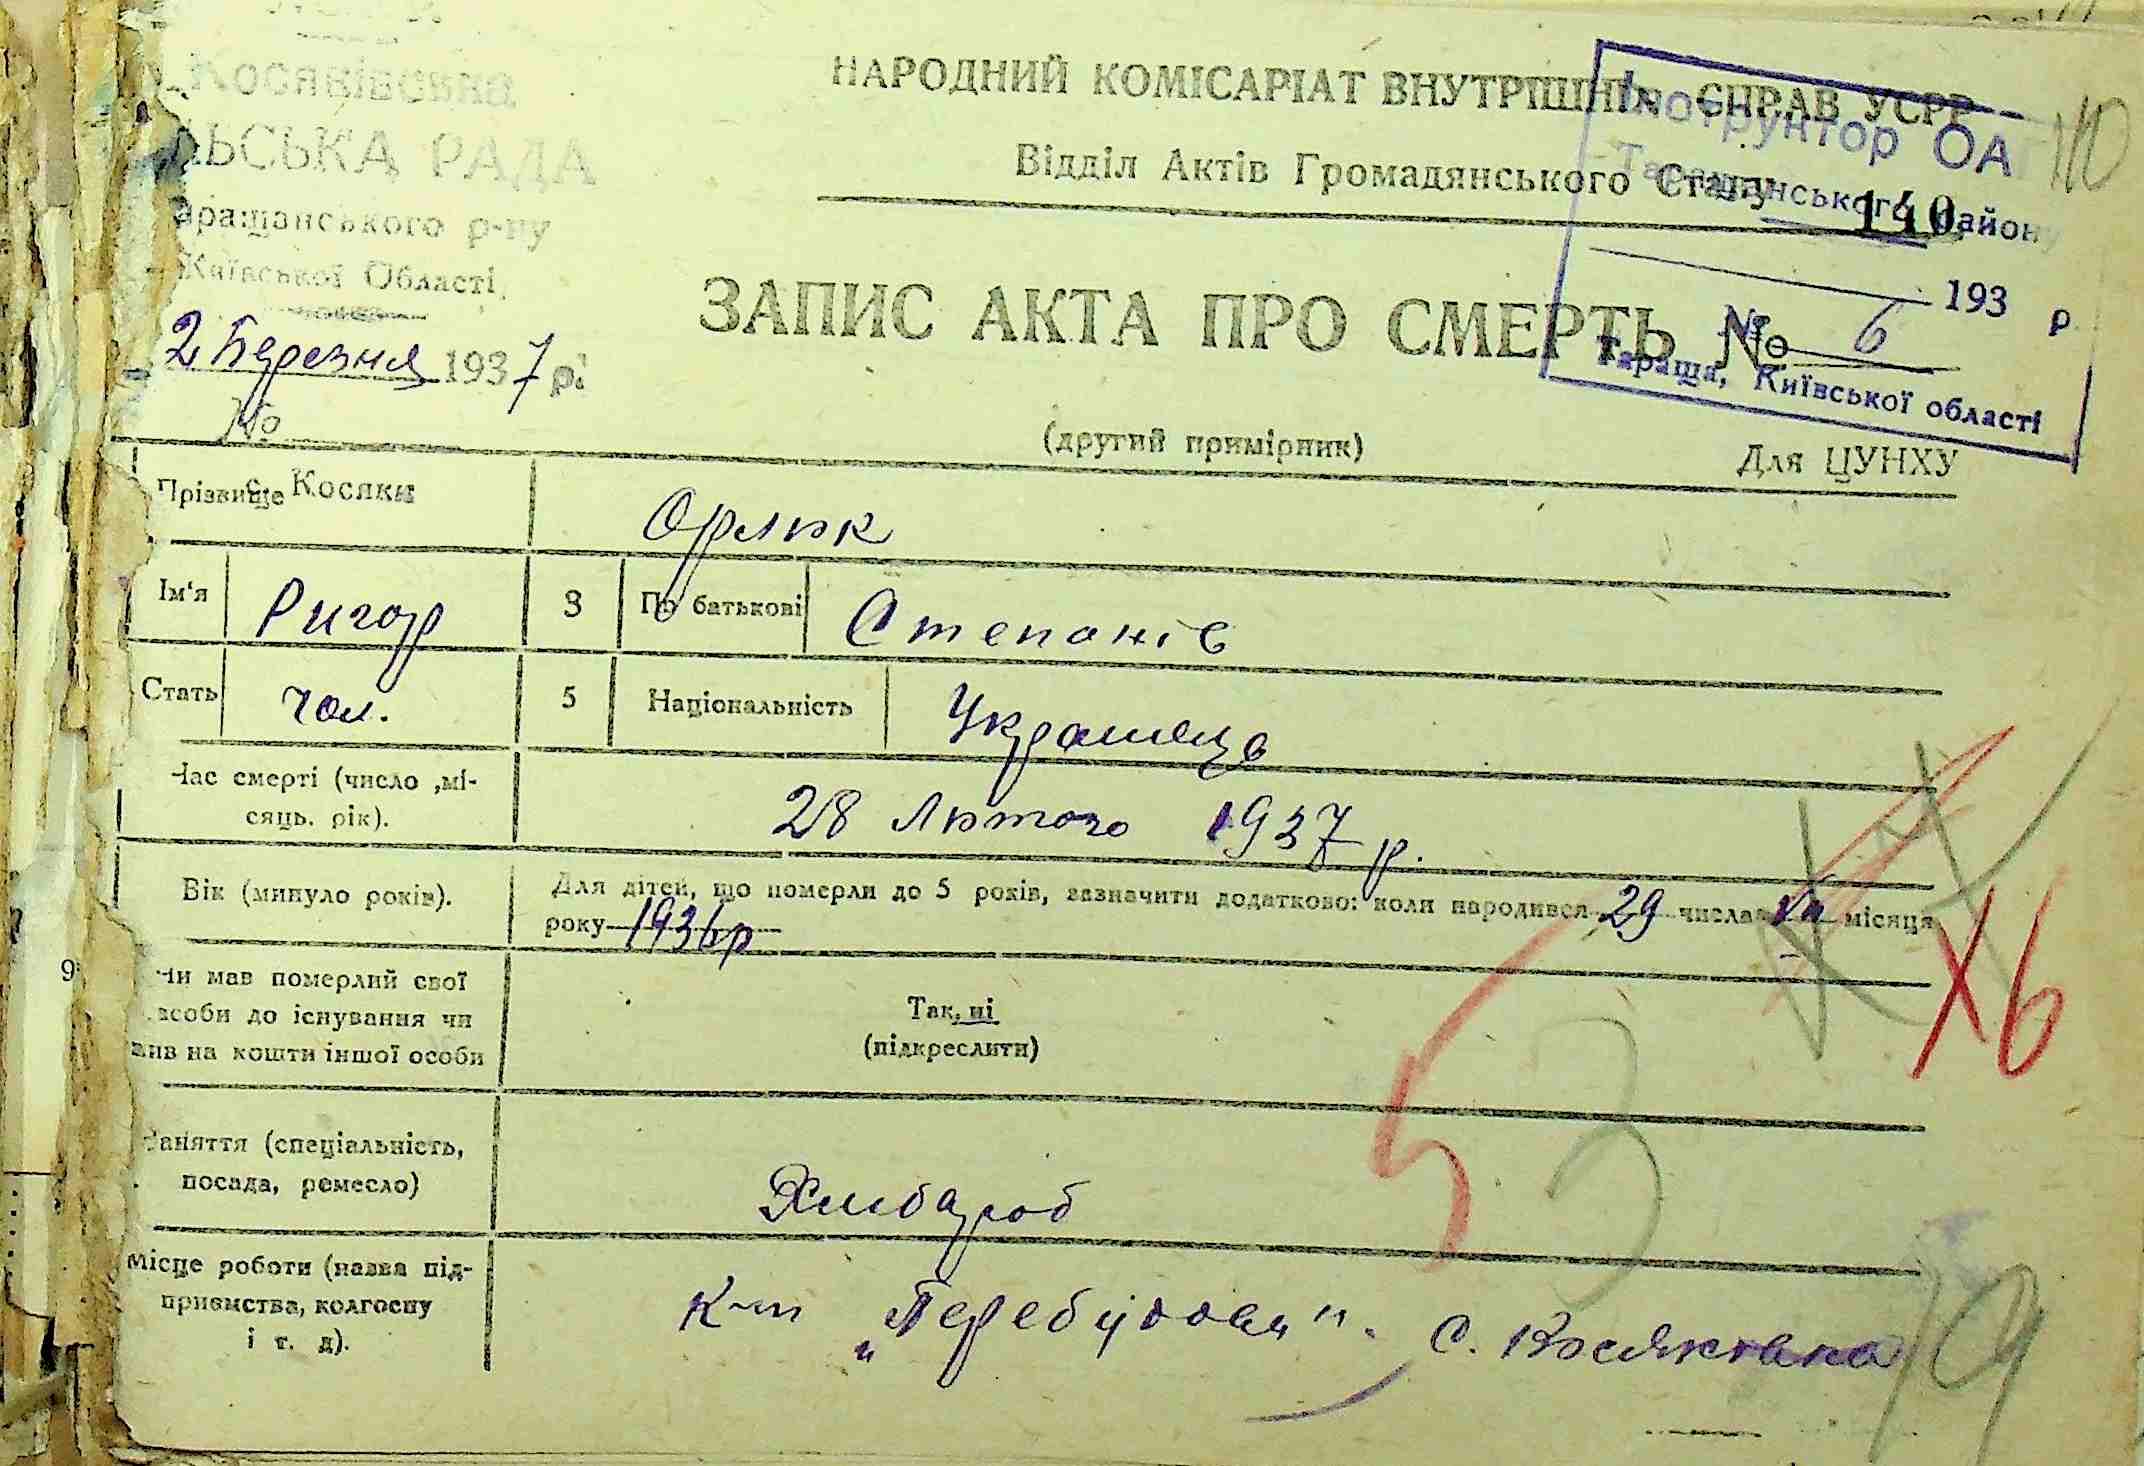 Косяківська
ЛЬСЬКА РАДА
аращанського р-ну
Київської Області
2 Березня 1937 р.
№
НАРОДНИЙ КОМІСАРІАТ ВНУТРІШНІХ СПРАВ УСРР
Відділ Актів Громадянського Стану
140
110
Інструктор ОА
Таращанського району
193 р.
Тараща, Київської області
ЗАПИС АКТА ПРО СМЕРТЬ № 6
(другий примірник)
Для ЦУНХУ
Прізвище
с. Косяки
Орлюк
Ім'я Ригор 3 По батькові Степанів
Стать чол. 5 Національність Українець
Час смерті (число ,мі-
сяць. рік).
28 Лютого 1937 р.
Вік (минуло років).
Для дітей, що померли до 5 років, зазначити додатково: коли народився 29 числа місяця
року 1936 р
9
Чи мав померлий свої
засоби до існування чи
жив на кошти іншої особи
Так, ні
(підкреслити)
Х6
53
Заняття (спеціальність,
посада, ремесло)
Хлибароб
Місце роботи (назва під-
приємства, колгоспу
і т. д).
К-т „Перебудова". С. Косяківка
19